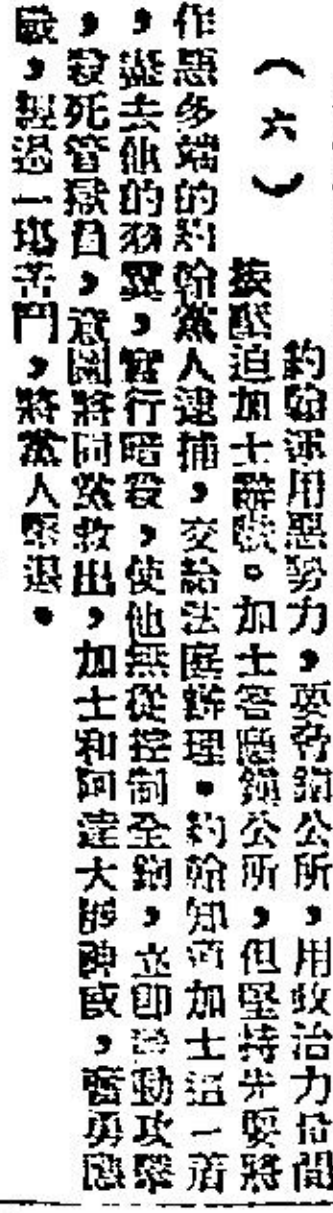 （六）
約翰運用惡勢力，要脅鎮公所，用政治力量間
接壓迫加士辭職。加士答應鎮公所，但堅持先要將
作惡多端的約翰黨人逮捕，交給法庭辦理。約翰知道加士這一着
，盡去他的羽翼，實行暗殺，使他無從控制全鎮，立即發動攻擊
，殺死管獄員，意圖將同黨救出，加士和阿達大師神威，奮勇應
戰，經過一塲苦鬥，將黨人擊退。